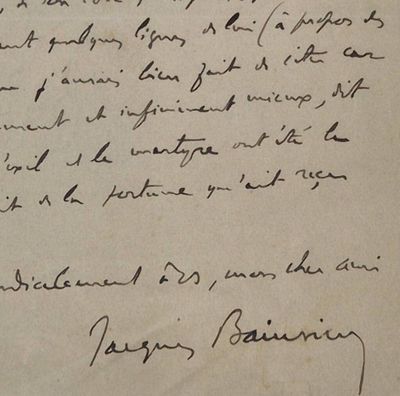 de son
quelques lignes de lui (à propos des
j'aurais bien fait de citer car
et infiniment mieux, dit
l'exil et le martyre ont été la
de la fortune qu'ait reçu
cordialement à vs, mon cher ami
Jacques Bainville